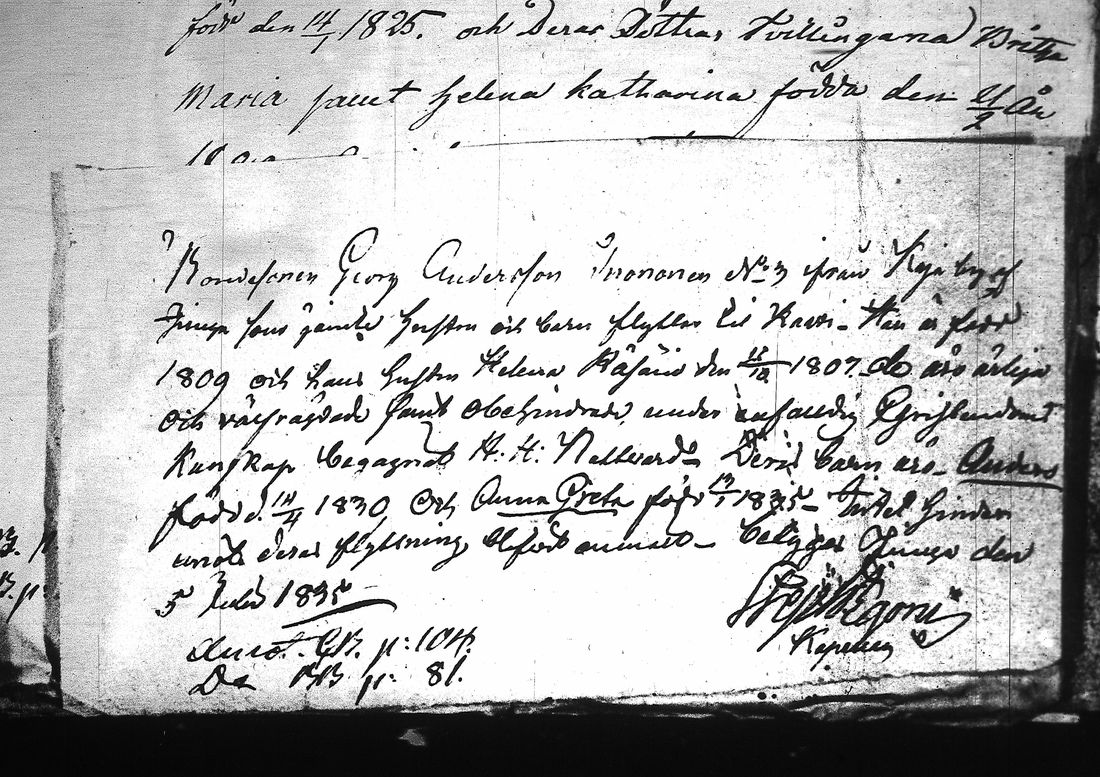 född den 14/1 1825. och Deras Döttrar Tvillingarna Britha
Maria samt Helena Katharina födda den 21/2 År
Bondesonen Georg Andersson Innonen No 3 ifrån Keja by af
som jämte hustru och barn flyttar til Kavvi. Han är född
1809 och hans hustru Helena Räsäin den /12 1807. de äro ärliga
och välfrägdade samt obehindrade, under enfaldig Christendoms
Kunskap begagnat H. H. Nattvard. Deras barn äro Anders
född d. 14/4 1830, och Anna Greta född 13/1 1835. Intet hinder
emot deras flyttning blifvit anmält. betygar den
5 Julii 1835
Kapellan
Annot. GB. p: 104.
Do BB p: 81.